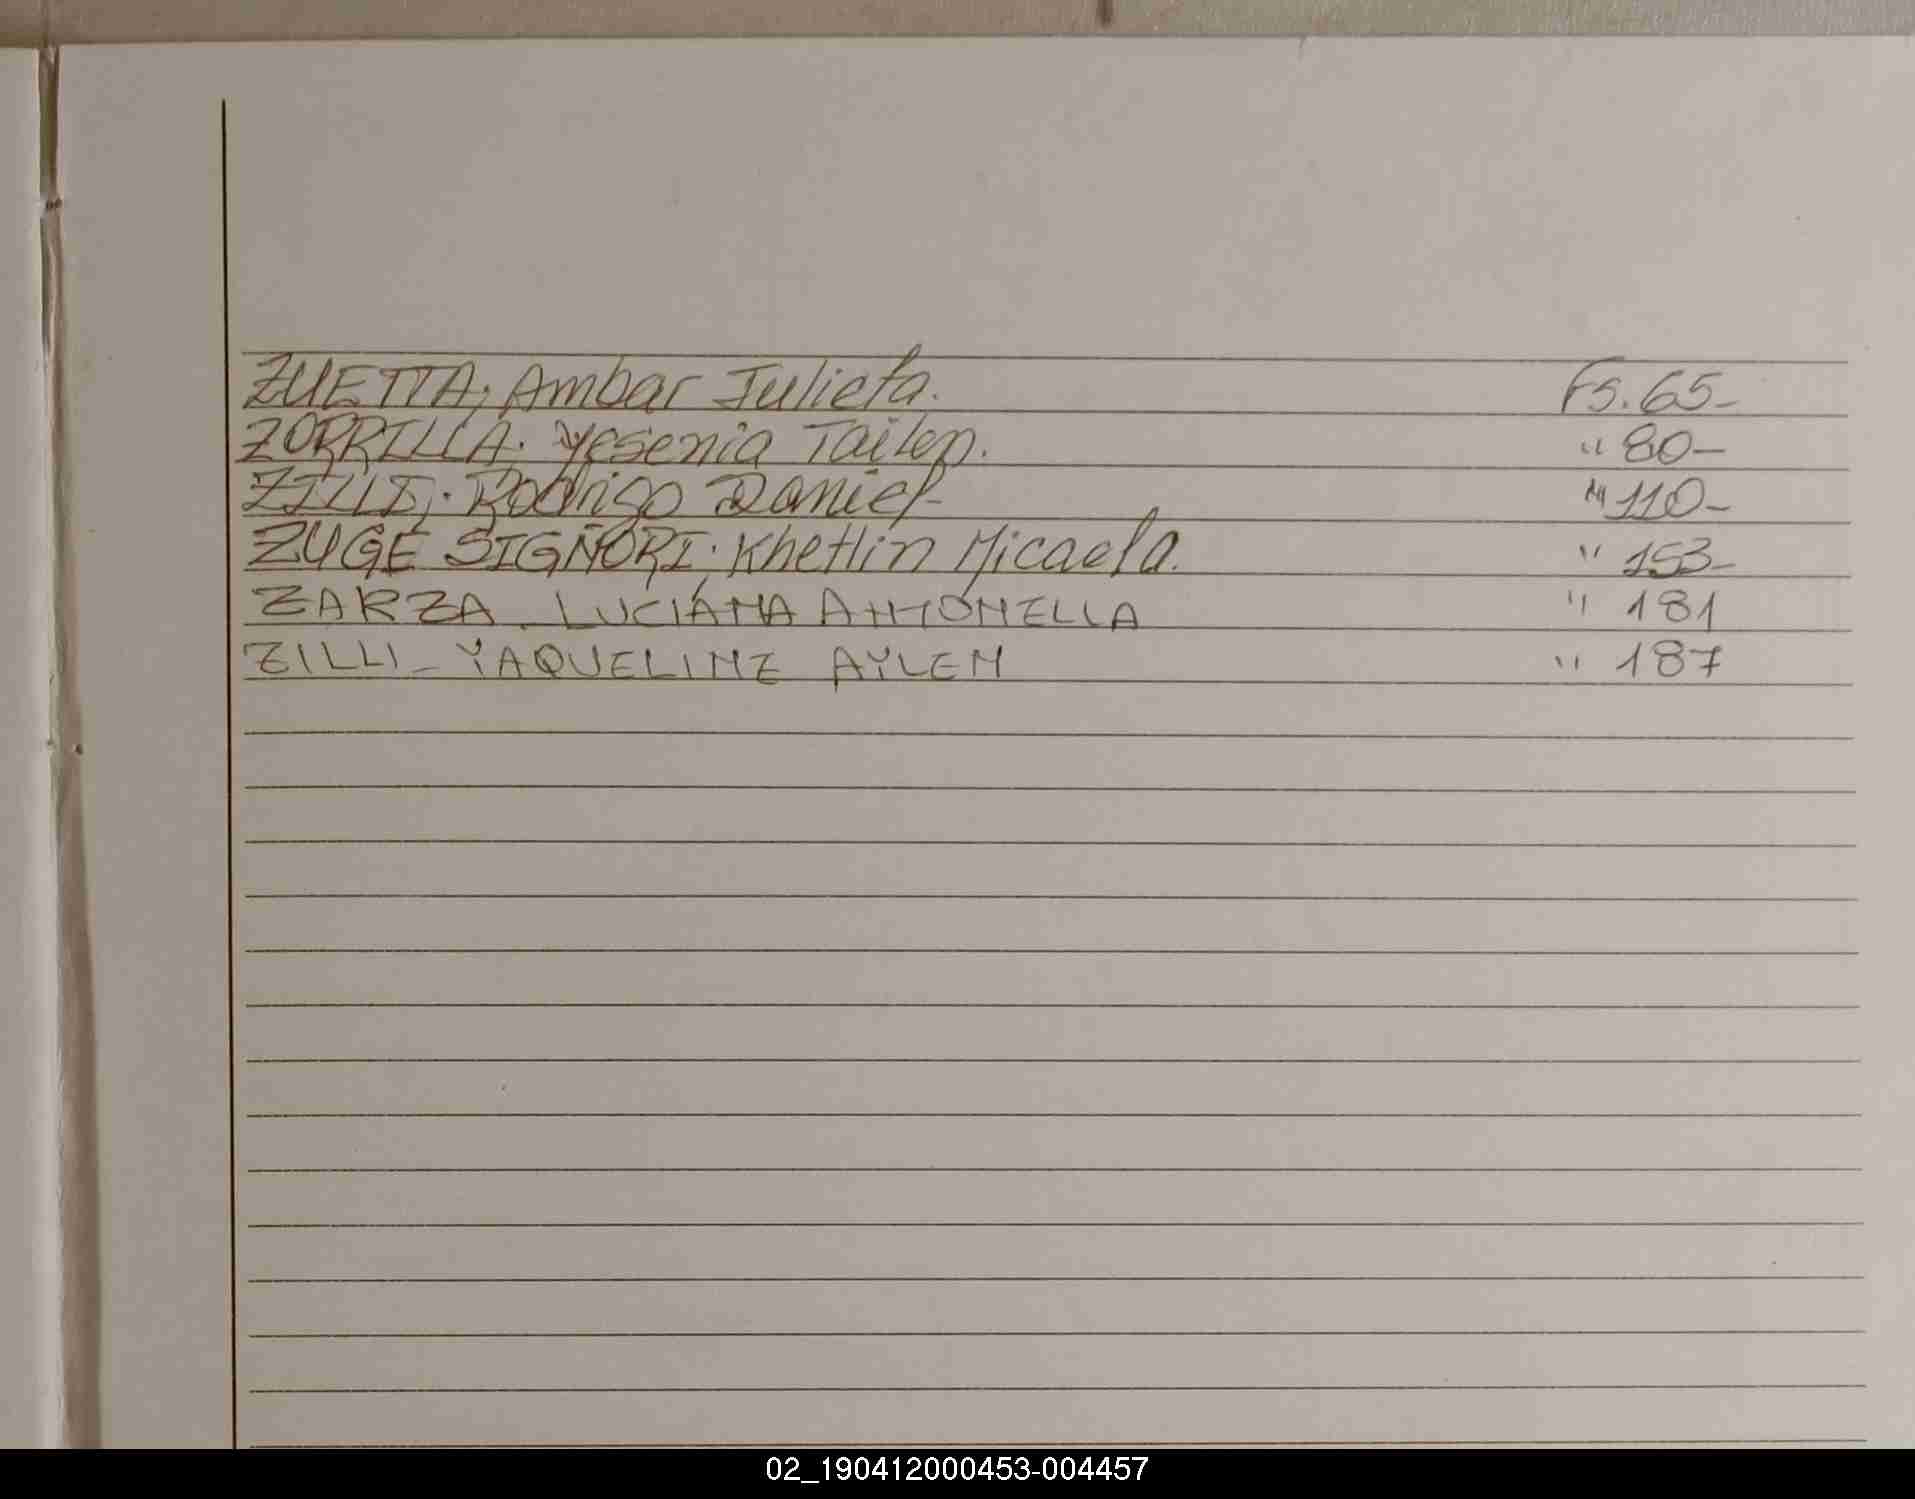 ZUETTA; Ambar Julieta. Fs. 65-
ZORRILLA. Yesenia Tailen. " 80-
ZILLI; Rodrigo Daniel- " 110-
ZUGE SIGÑORI; Khetlin Micaela. " 153-
ZARZA. LUCIANA ANTONELLA " 181
ZILLI- YAQUELINE AYLEN " 187
02_190412000453-004457